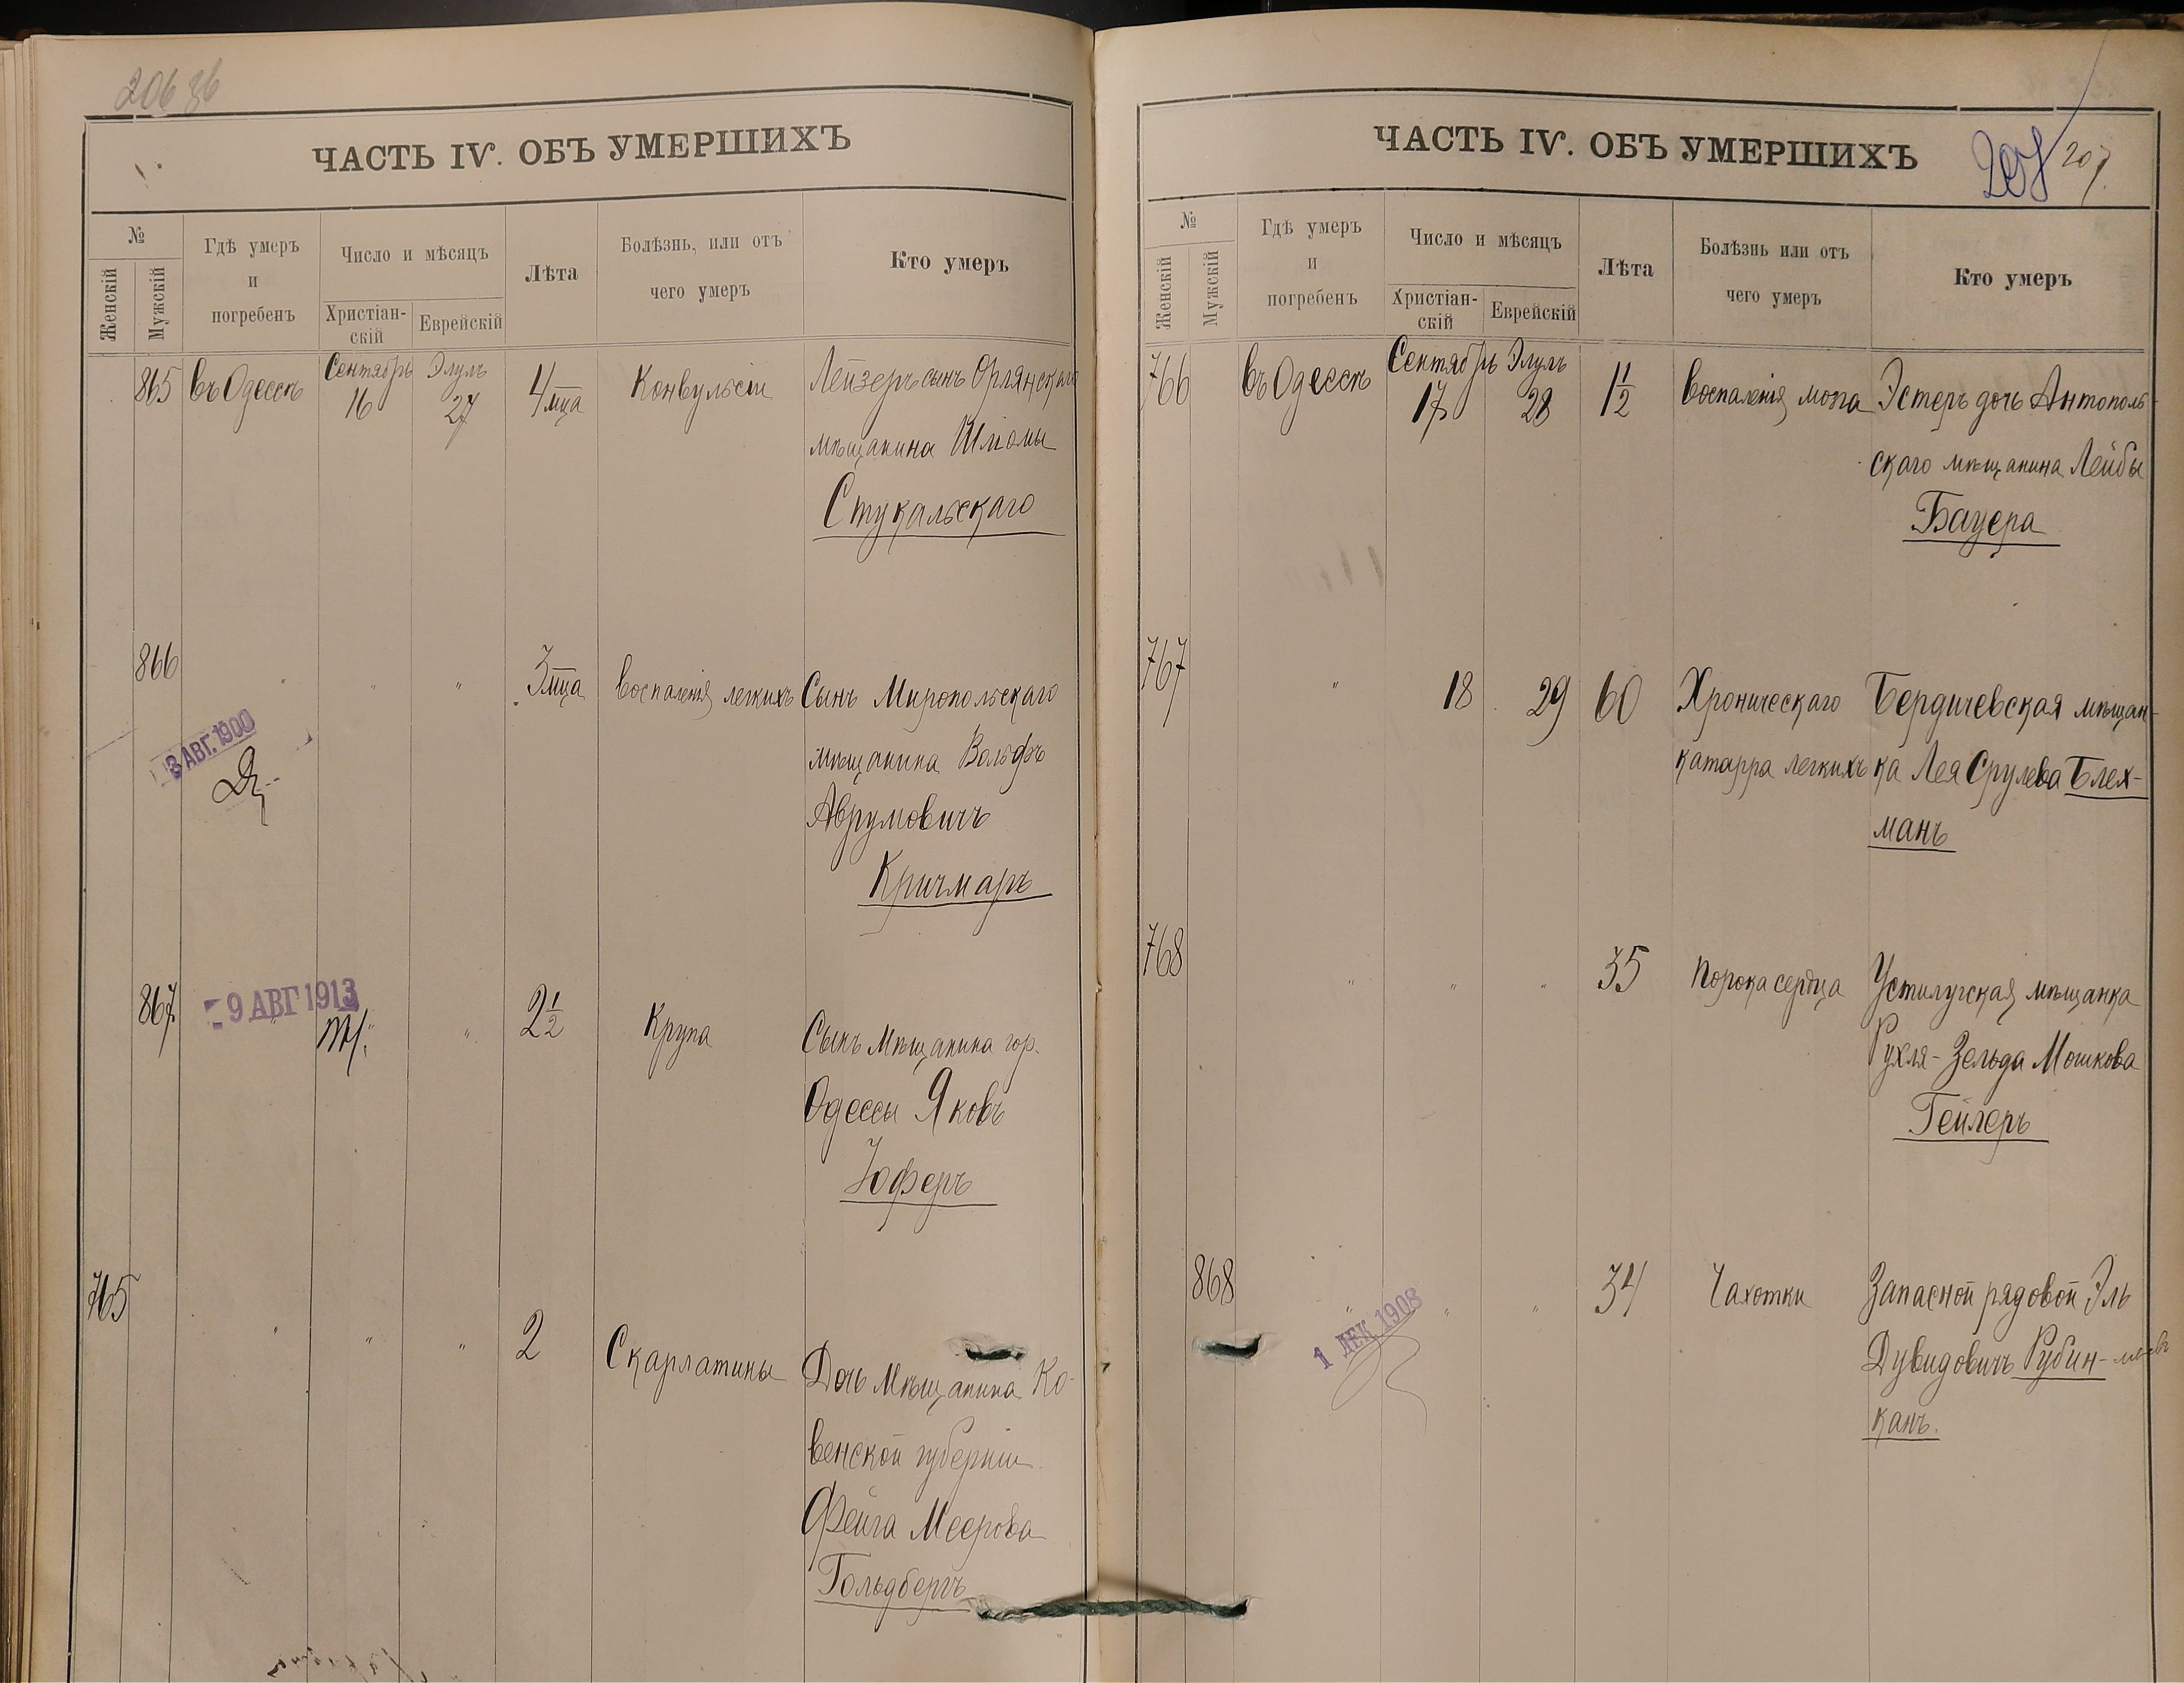 206 зб
ЧАСТЬ IV. ОБЪ УМЕРШИХЪ
№
Женскій
Мужскій
Гдѣ умеръ
и
погребенъ
Число и мѣсяцъ
Христіан-
скій
Еврейскій
Лѣта
Болѣзнь, или отъ
чего умеръ
Кто умеръ
865 въ Одессѣ Сентябрь 16 Элулъ 27 4 мца Конвульсіи Лейзеръ сынъ Оргѣевскаго
мѣщанина Шломы
Стукальскаго
866 " " 3 мца воспаленія легкихъ Сынъ Миропольскаго
мѣщанина Вольфъ
Аврумовичъ
Кричмаръ
3 АВГ. 1900
867 " " " 2 1/2 Крупа Сынъ мѣщанина гор.
Одессы Яковъ
Юферъ
9 АВГ 1913
765 " " " 2 Скарлатины Дочь мѣщанина Ко-
венской губерніи
Фейга Меерова
Гольдбергъ
ЧАСТЬ IV. ОБЪ УМЕРШИХЪ
207 207.
№
Женскій
Мужскій
Гдѣ умеръ
и
погребенъ
Число и мѣсяцъ
Христіан-
скій
Еврейскій
Лѣта
Болѣзнь или отъ
чего умеръ
Кто умеръ
766 въ Одессѣ Сентябрь 17 Элулъ 28 1 1/2 воспаленія мозга Эстеръ дочь Антополь-
скаго мѣщанина Лейбы
Бауера
767 " 18 29 60 Хроническаго Бердичевская мѣщан-
катарра легкихъ ка Лея Срулева Блех-
манъ
768 " " " 35 порока сердца Устилугская мѣщанка
Рухля-Зельда Мошкова
Гейлеръ
868 " " " 34 Чахотки Запасной рядовой Эль
Дувидовичъ Рубин-
канъ.
1 ДЕК 1908